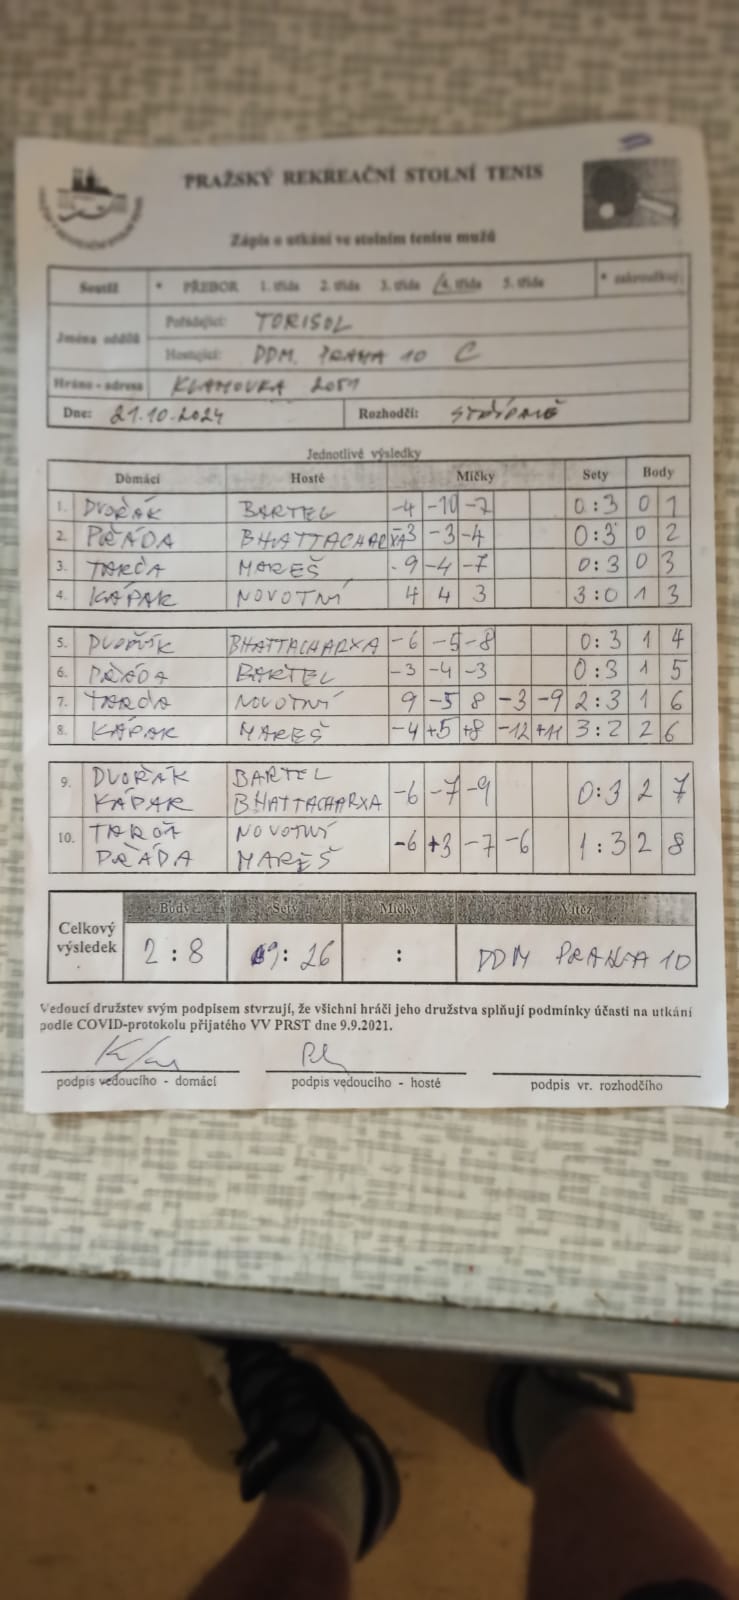 PRAŽSKÝ REKREAČNÍ STOLNÍ TENIS
Zápis o utkání ve stolním tenisu mužů
Soutěž * PŘEBOR 1. třída 2. třída 3. třída 4. třída 5. třída * zakroužkuj
Jména oddílů
Pořádající: TORISOL
Hostující: DDM. PRAHA 10 C
Hráno - adresa KLAMOVKA 2051
Dne: 21.10.2024 Rozhodčí: STŘÍDAVĚ
Jednotlivé výsledky
Domácí Hosté Míčky Sety Body
1. DVOŘÁK BARTEL -4 -10 -7 0:3 0 1
2. PŘÁDA BHATTACHARXA -3 -3 -4 0:3 0 2
3. TARČA MAREŠ -9 -4 -7 0:3 0 3
4. KÁPAR NOVOTNÍ 4 4 3 3:0 1 3
5. DVOŘÁK BHATTACHARXA -6 -5 -8 0:3 1 4
6. PŘÁDA BARTEL -3 -4 -3 0:3 1 5
7. TARČA NOVOTNÍ 9 -5 8 -3 -9 2:3 1 6
8. KÁPAR MAREŠ -4 +5 +8 -12 +11 3:2 2 6
9. DVOŘÁK BARTEL
KÁPAR BHATTACHARXA -6 -7 -9 0:3 2 7
10. TARČA NOVOTNÍ
PŘÁDA MAREŠ -6 +3 -7 -6 1:3 2 8
Celkový výsledek
Body Sety Míčky Vítěz
2:8 9:26 : DDM PRAHA 10
Vedoucí družstev svým podpisem stvrzují, že všichni hráči jeho družstva splňují podmínky účasti na utkání
podle COVID-protokolu přijatého VV PRST dne 9.9.2021.
podpis vedoucího - domácí podpis vedoucího - hosté podpis vr. rozhodčího